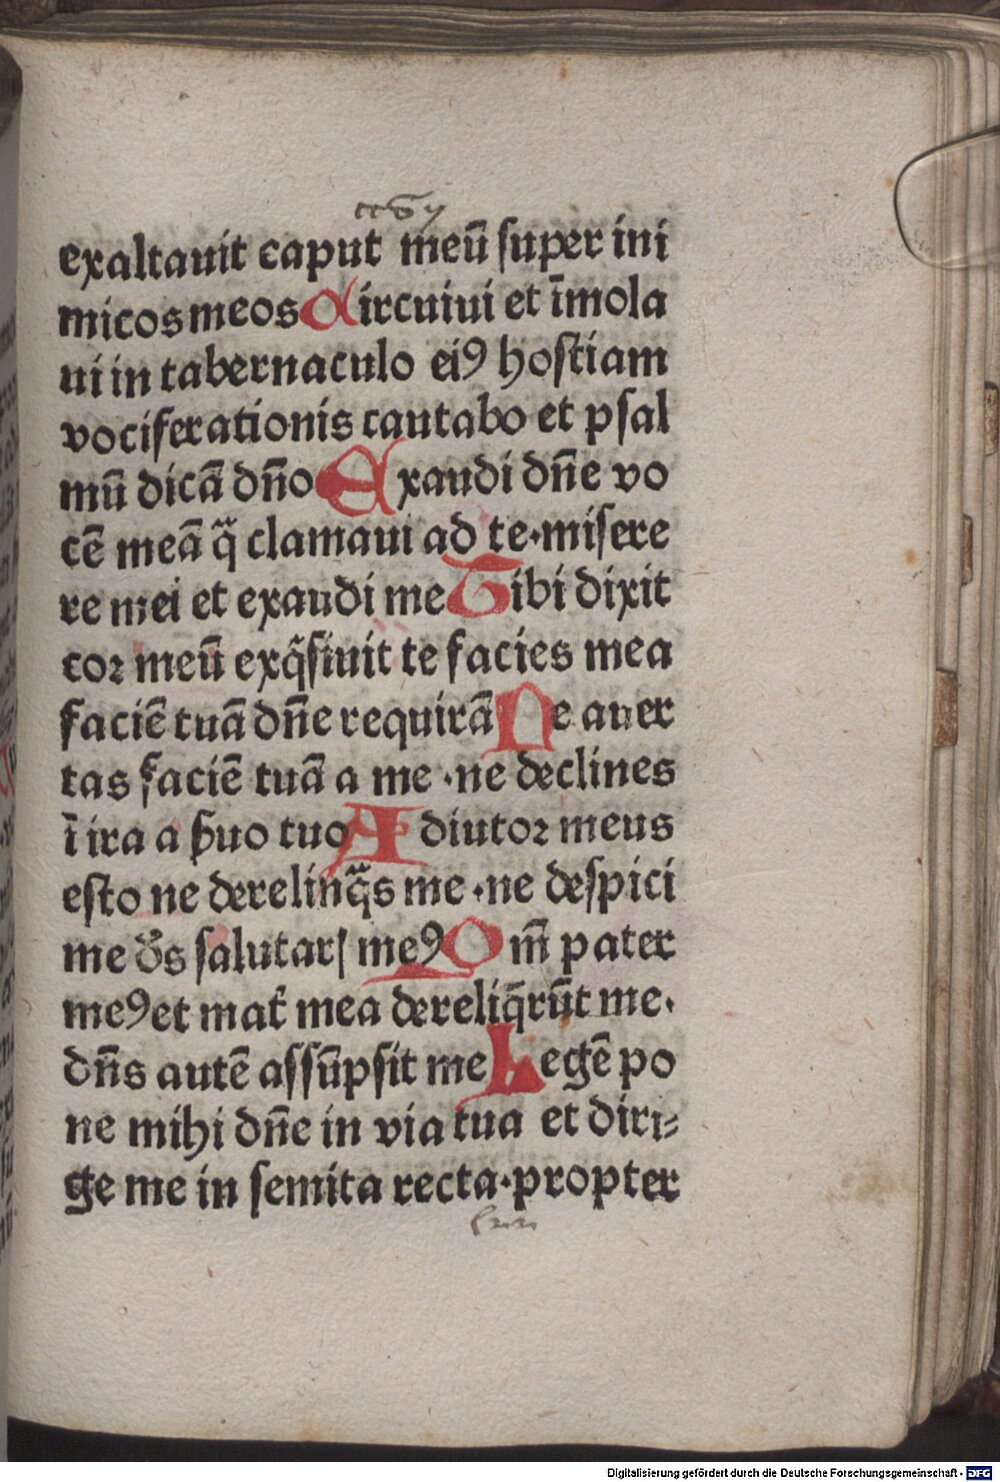 exaltauit caput meū super ini
micos meos Circuiui et īmola
ui in tabernaculo eiꝰ hostiam
vociferationis cantabo et psal
mū dicā dn̄o Exaudi dn̄e vo
cē meā q̄ clamaui ad te·misere
re mei et exaudi me Tibi dixit
cor meū exq̄siuit te facies mea
faciē tuā dn̄e requirā Ne auer
tas faciē tuā a me ·ne declines
ī ira a ẜuo tuo Adiutor meus
esto ne derelinq̄s me ·ne despici
me de᷒s salutarꝭ meꝰ Om̄ pater
meꝰ et mat̄ mea dereliq̄rūt me·
dn̄s autē assūpsit me Legē po
ne mihi dn̄e in via tua et diri⸗
ge me in semita recta·propter
Digitalisierung gefördert durch die Deutsche Forschungsgemeinschaft - DFG